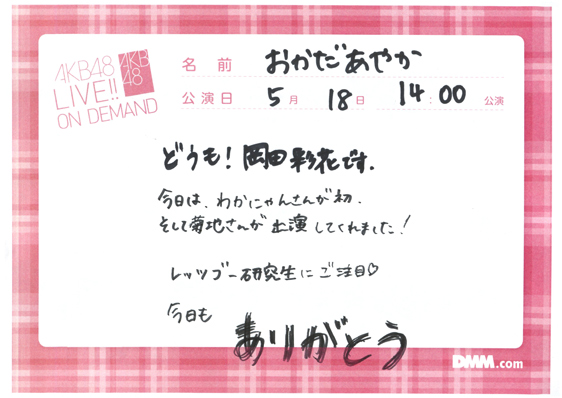 AKB48
LIVE!!
ON DEMAND
AKB
48
名前 おかだあやか
公演日 5月 18日 14:00 公演
どうも！岡田彩花です.
今日は、わかにゃんさんが初、
そして菊地さんが出演してくれました！
レッツゴー研究生にご注目♡
今日も
ありがとう
DMM.com